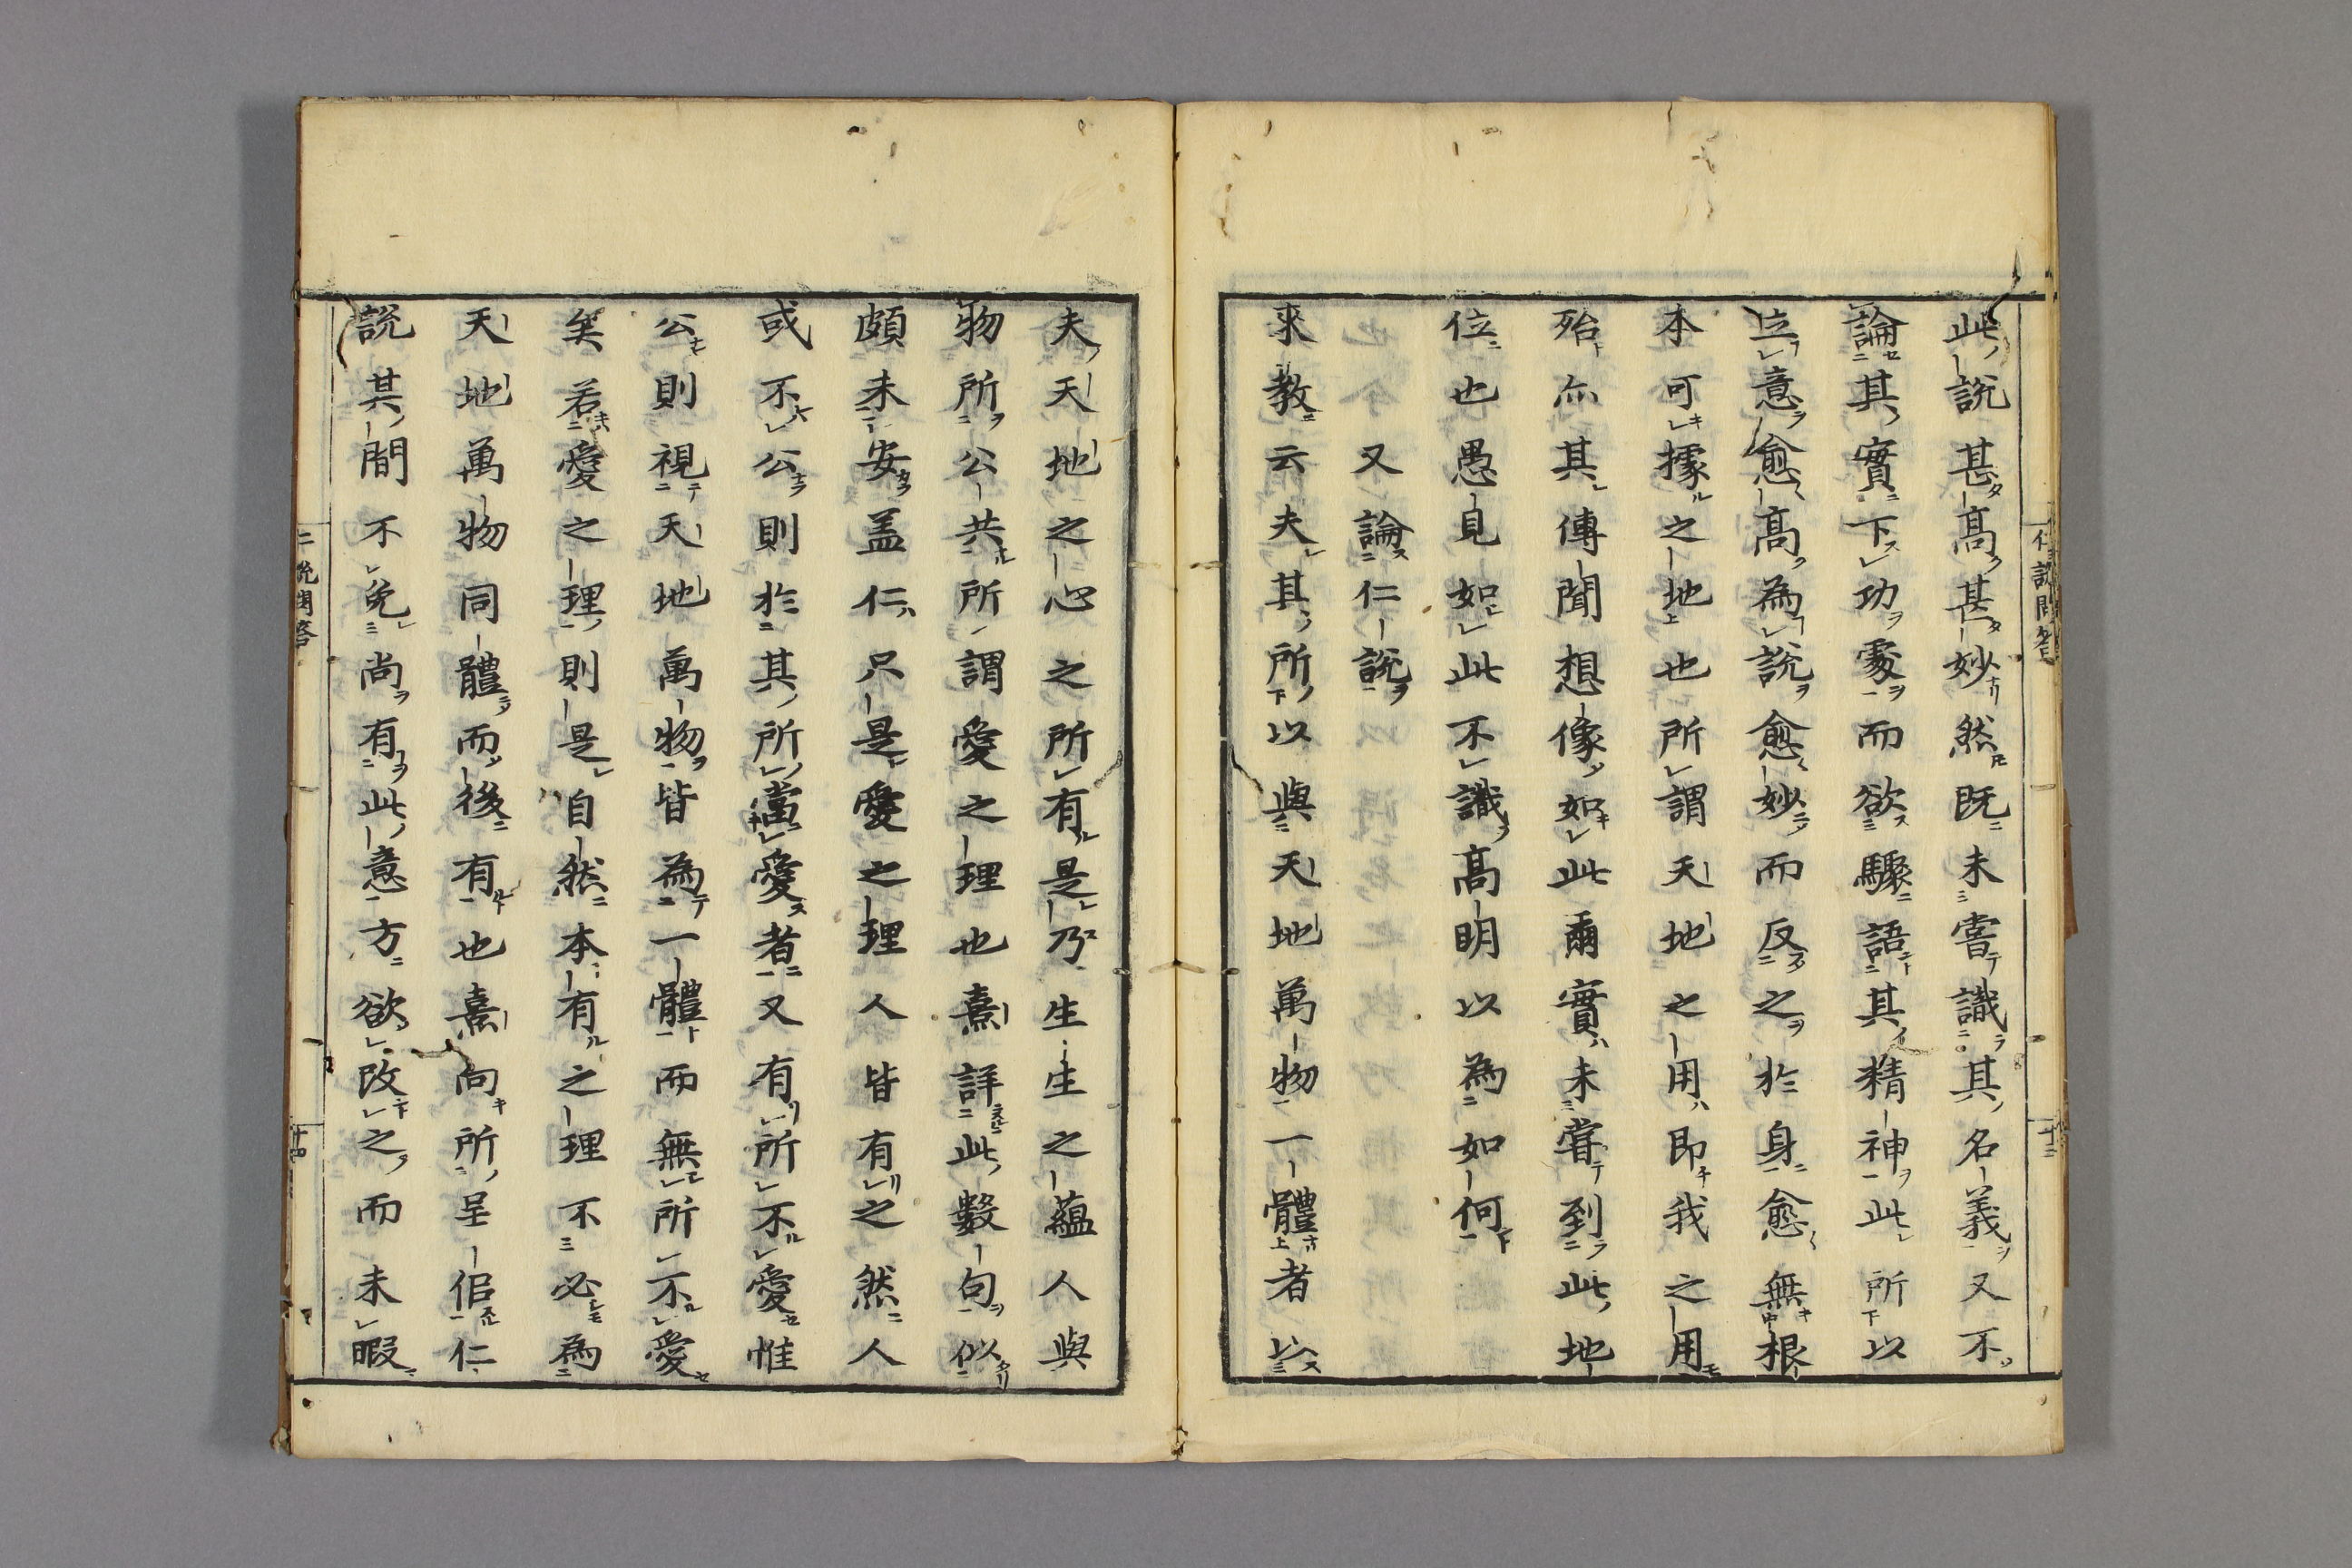 仁說問答
十三
此說甚高甚妙然既未嘗識其名義又不
論其實下功處而欲驟語其精神此所以
立意愈高為說愈妙而反之於身愈無根
本可據之地也所謂天地之用即我之用
殆亦其傳聞想像如此爾實未嘗到此地
位也愚見如此不識高明以為如何
又論仁說
來教云夫其所以與天地萬物一體者以
夫天地之心之所有是乃生生之蘊人與
物所公共所謂愛之理也熹詳此數句似
頗未安盖仁只是愛之理人皆有之然人
或不公則於其所當愛者又有所不愛惟
公則視天地萬物皆為一體而無所不愛
矣若愛之理則是自然本有之理不必為
天地萬物同體而後有也熹向所呈佀仁
說其間不免尚有此意方欲改之而未暇
仁說問答
十四